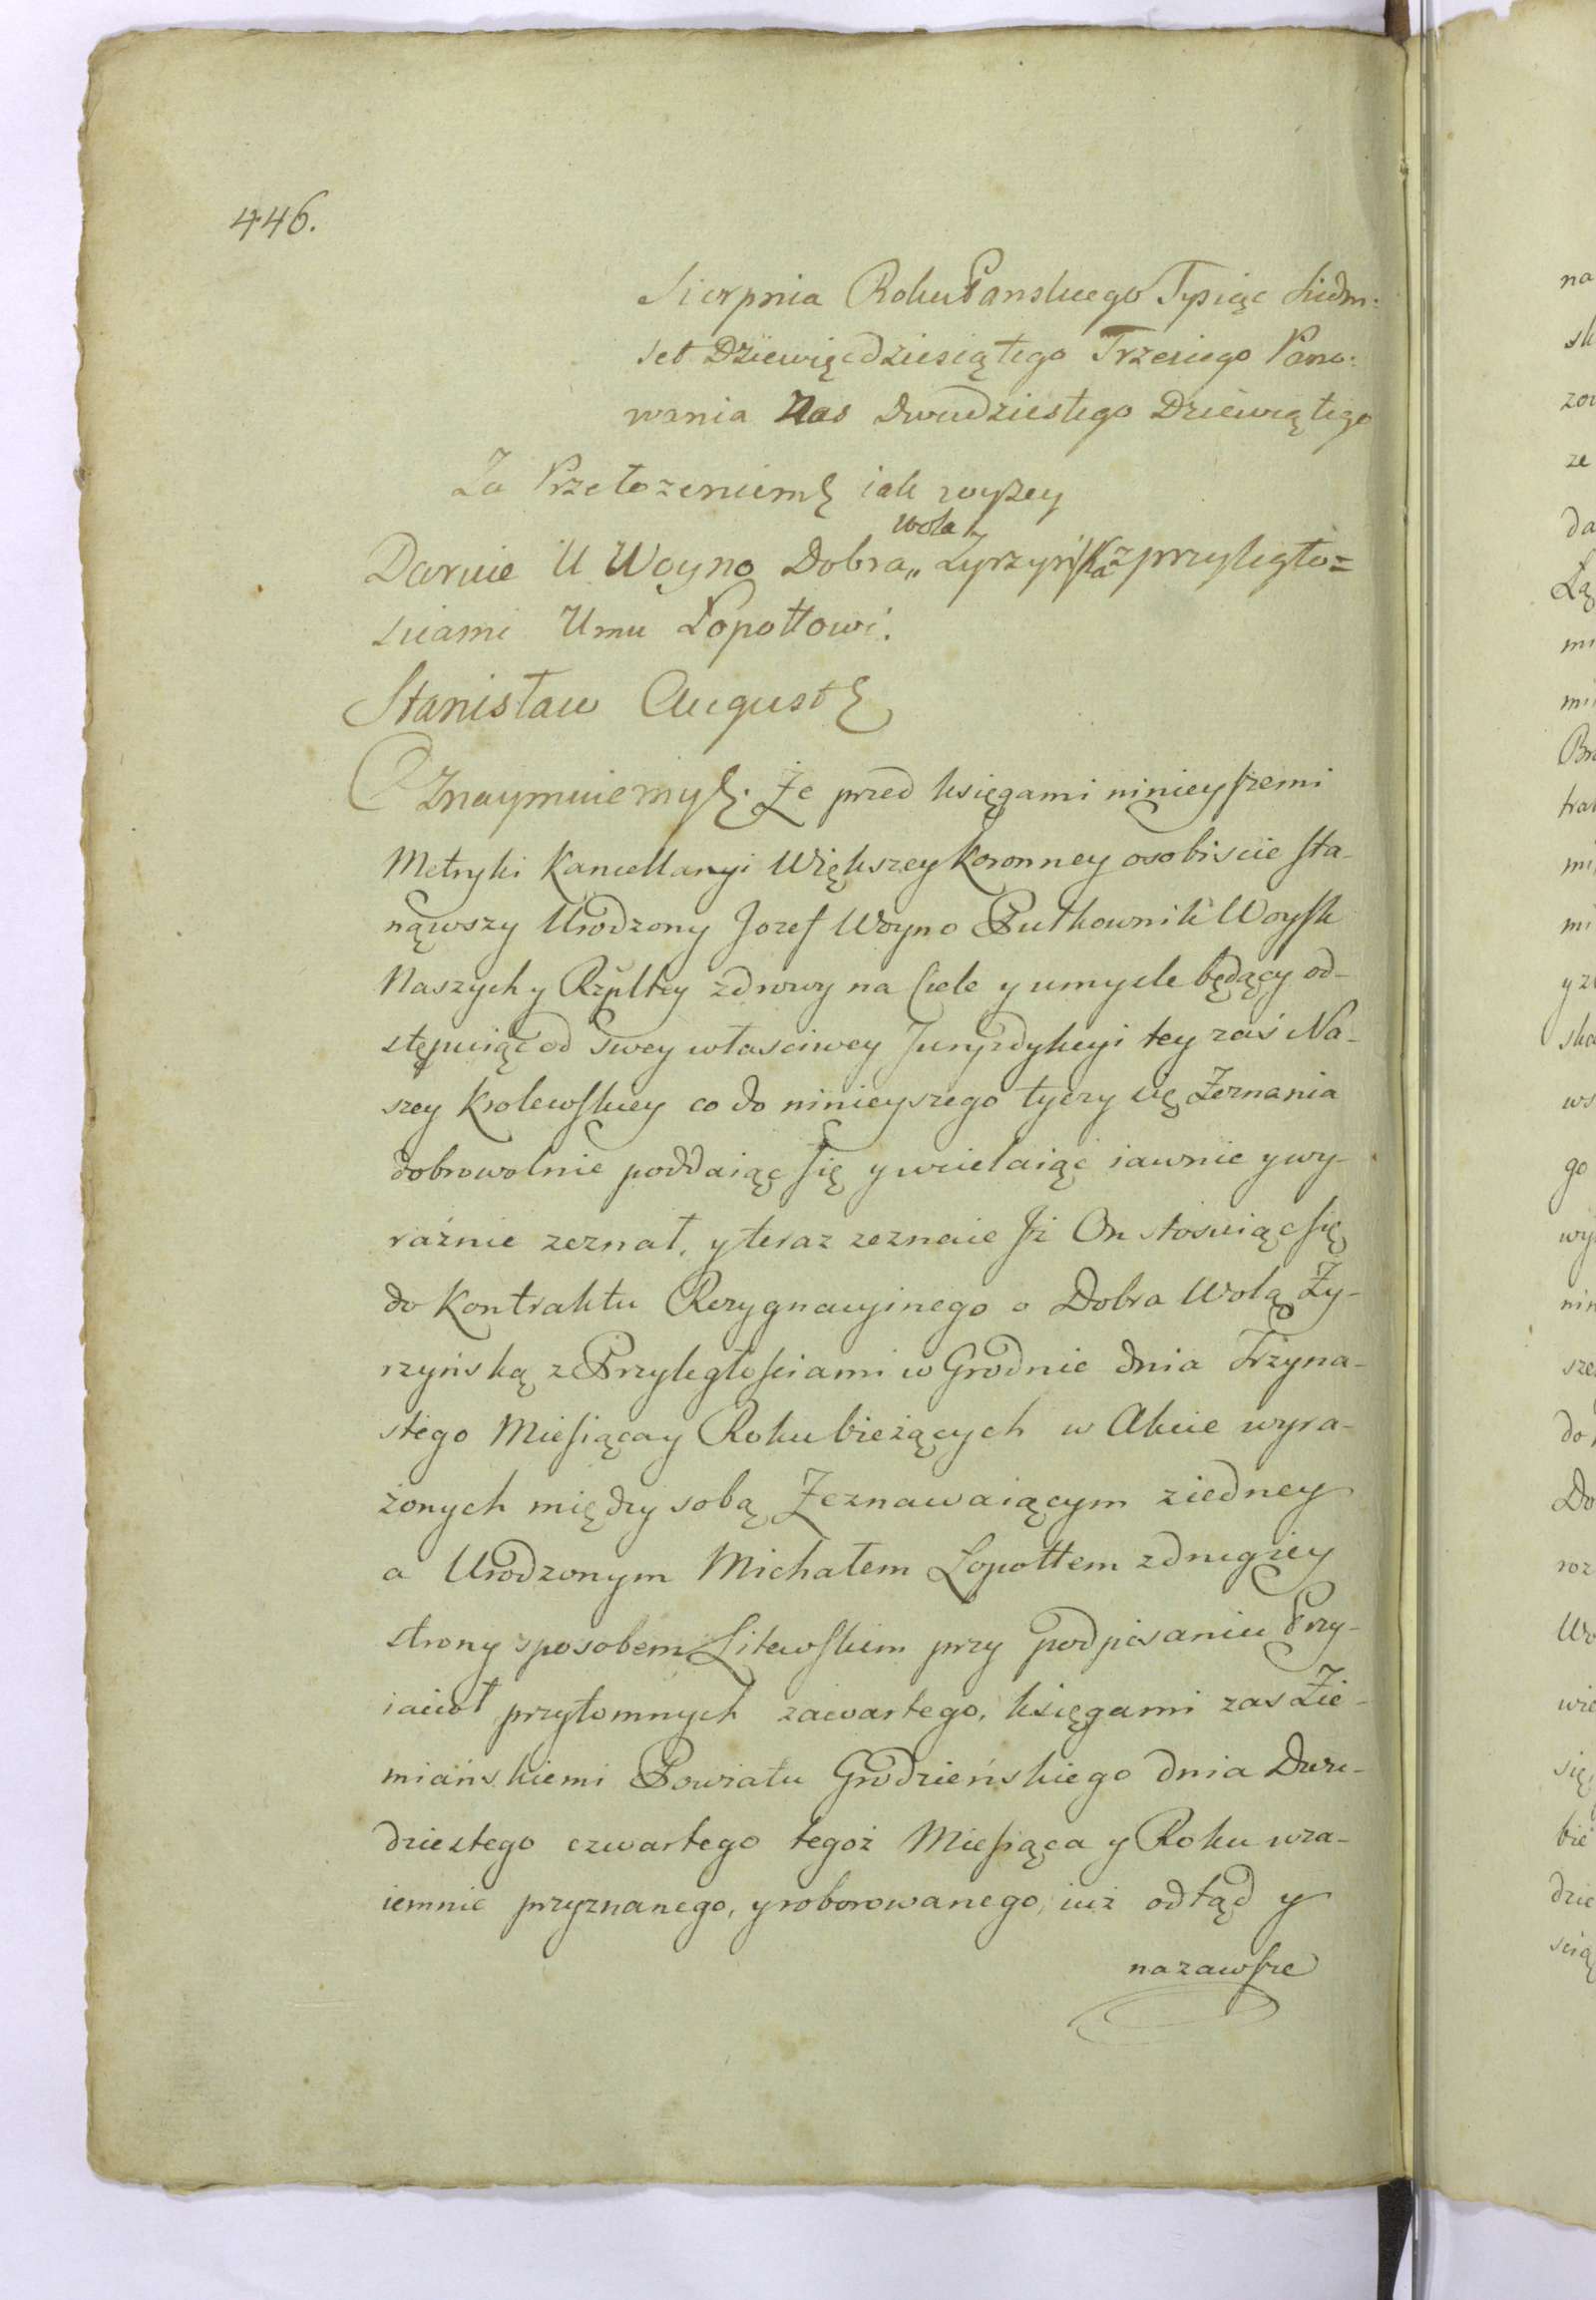 446.
Sierpnia Roku Panskiego Tysiąc Siedm:
set Dziewięćdziesiątego Trzeciego Pano:
wania Nas Dwudziestego Dziewiątego
Za Przełożeniem iak wyszey
wola
Daruie U Woyno Dobra„ Żyrzyńska z przyległo=
sciami Umu Łopottowi.
Stanisław August
Oznaymuiemy. Że przed księgami ninieyszemi
Metryki Kancellaryi Większey Koronney osobiscie sta-
nąwszy Urodzony Jozef Woyno Pułkownik Woysk
Naszych y Rzpltey zdrowy na Ciele y umysle będący od-
stępuiąc od swey własciwey Juryzdykcyi tey zaś Na-
szey Krolewskiey co do ninieyszego tyczy się Zeznania
dobrowolnie poddaiąc się y wcielaiąc iawnie y wy-
raźnie zeznał, y teraz zeznaie Iż On stosuiąc się
do Kontraktu Rezygnacyinego o Dobra Wolą Ży-
rzyńską z Przyległosciami w Grodnie dnia Trzyna-
stego Miesiąca y Roku bieżących w Akcie wyra-
żonych między sobą Zeznawaiącym z iedney
a Urodzonym Michałem Łopottem z drugiey
strony sposobem Litewskim przy podpisaniu Przy-
iacioł przytomnych zawartego, księgami zas Zie-
miańskiemi Powiatu Grodzieńskiego dnia Dwu-
dziestego czwartego tegoż Miesiąca y Roku wza-
iemnie przyznanego, y roborowanego, iuż odtąd y
nazawsze